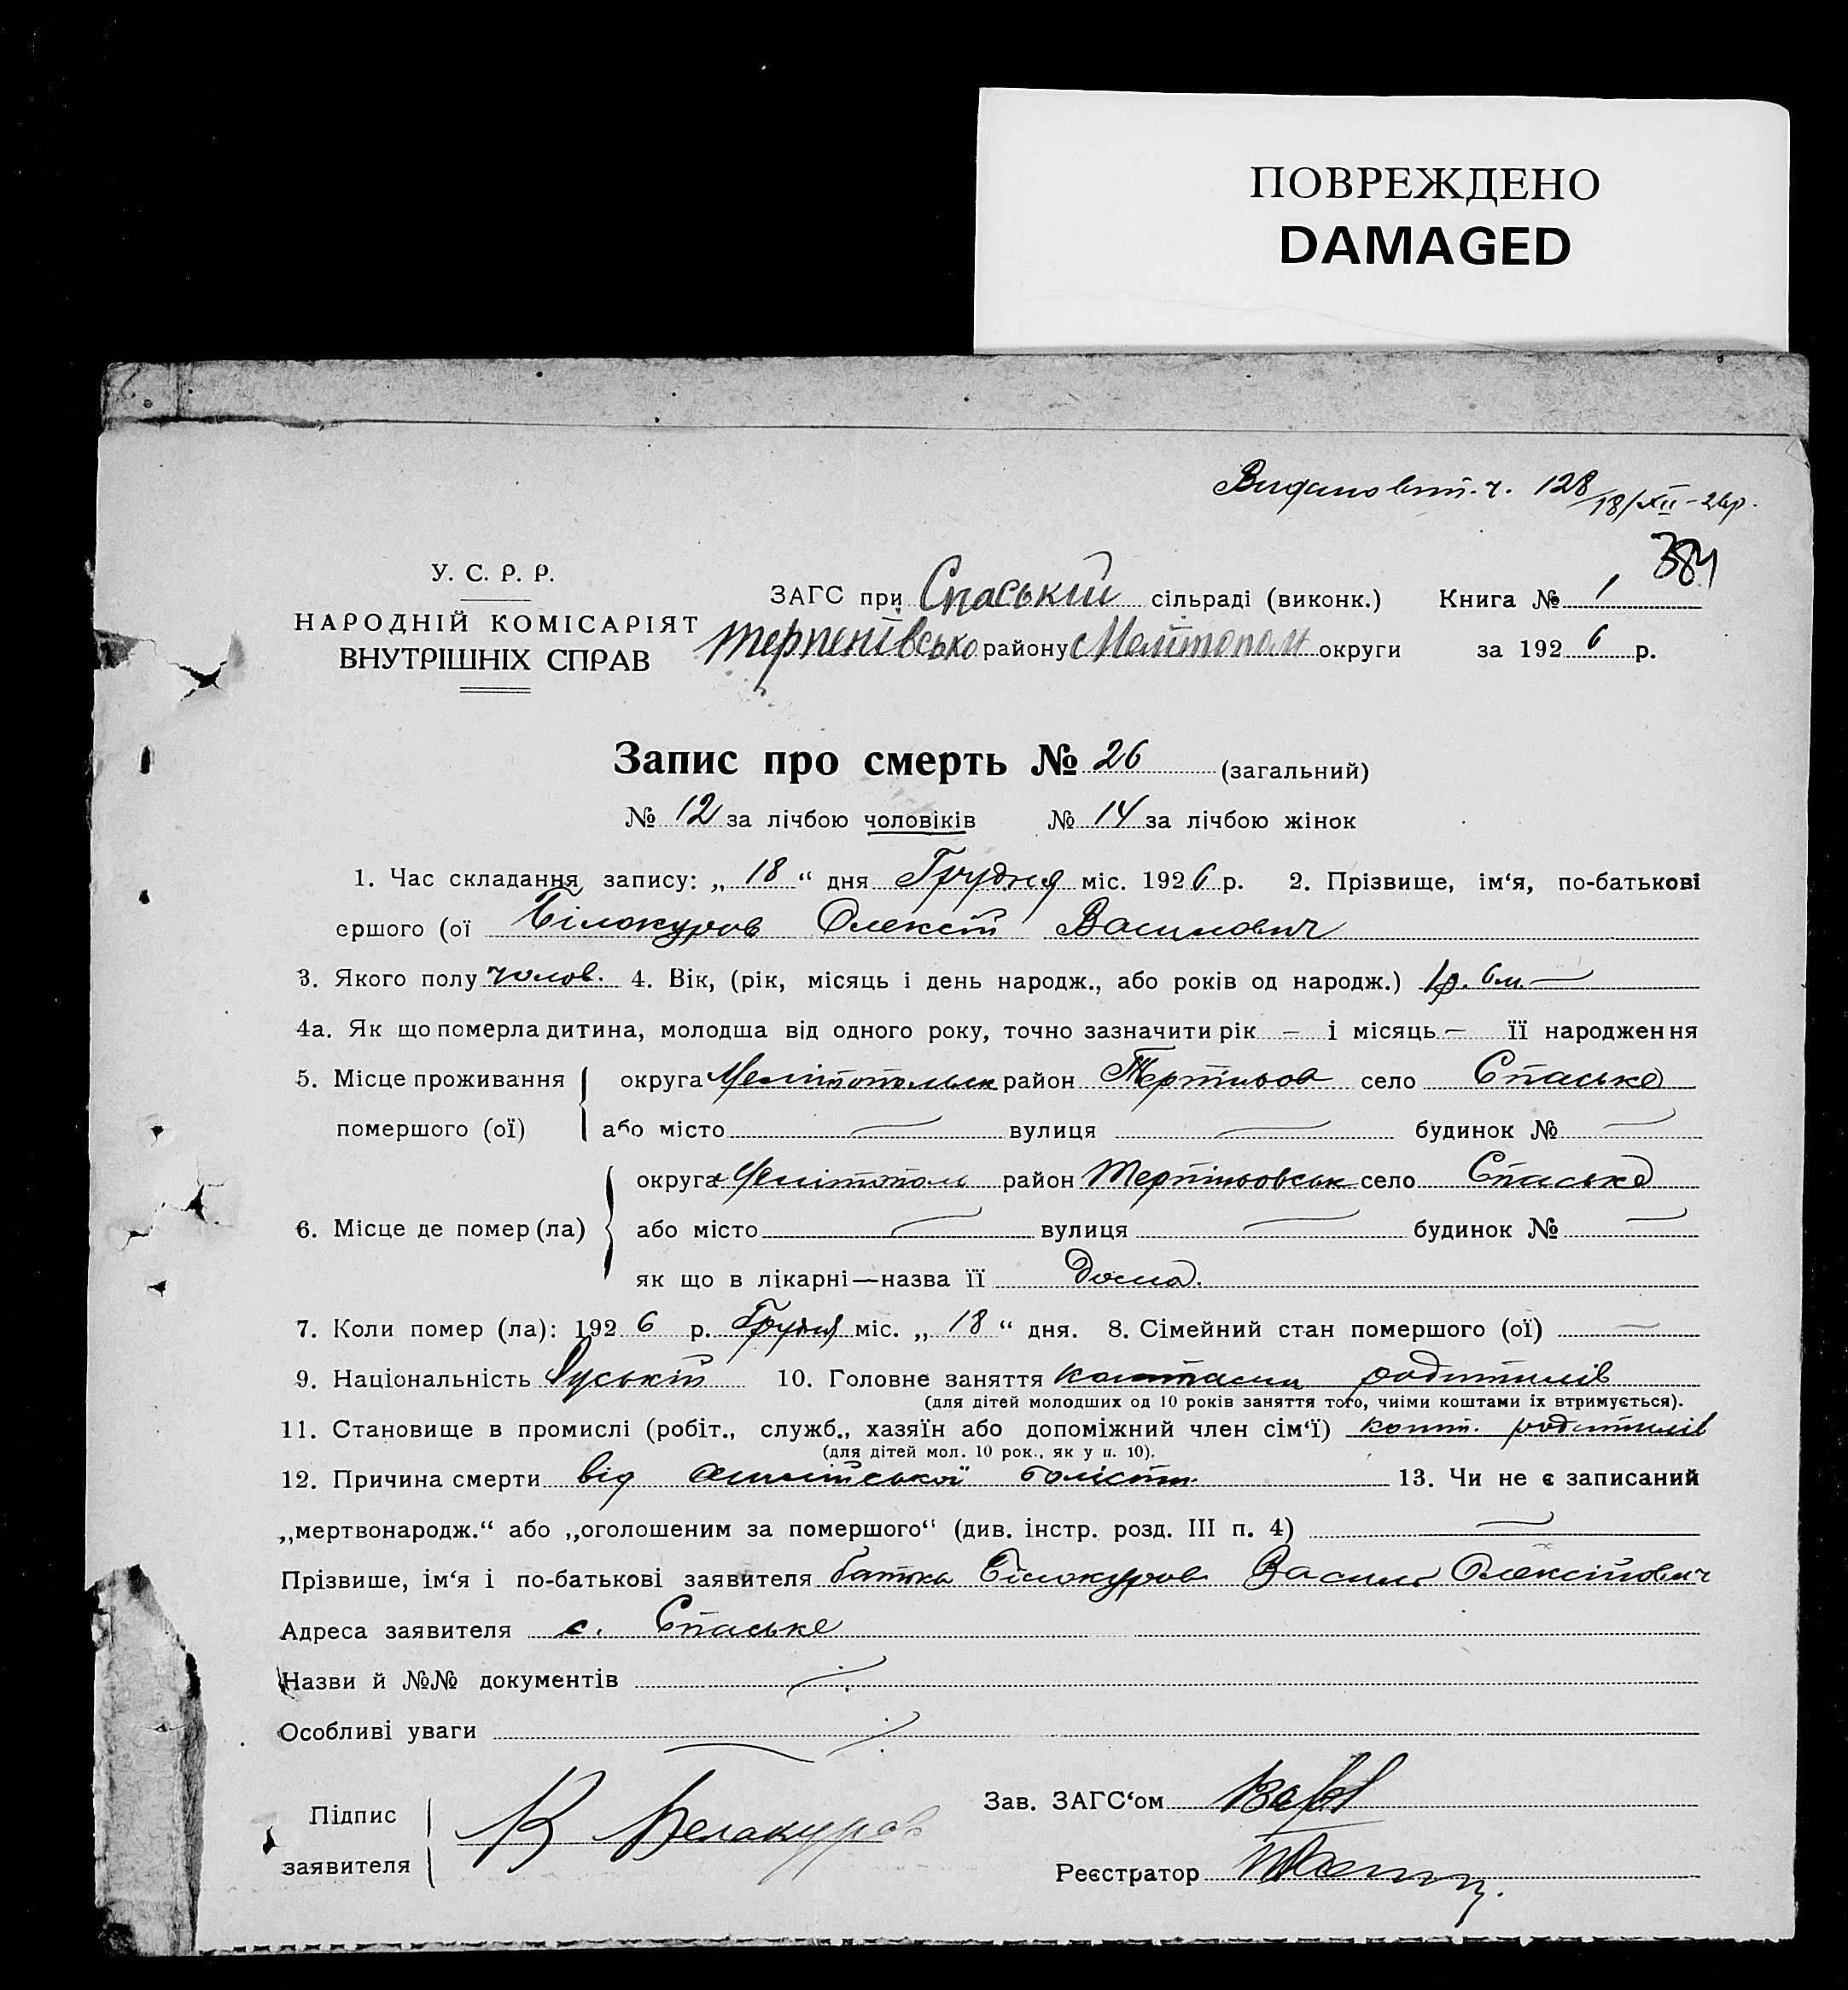 ПОВРЕЖДЕНО
DAMAGED
Видано вит. ч. 128 18/XII-26р.
384
У. С. Р. Р.
НАРОДНІЙ КОМІСАРІЯТ
ВНУТРІШНІХ СПРАВ
ЗАГС при Спаській сільраді (виконк.) Книга № 1
району Мелітопол округи за 1926 р.
Запис про смерть № 26 (загальний)
№ 12 за лічбою чоловіків № 14 за лічбою жінок
1. Час складання запису: „ 18 “ дня Грудня міс. 1926 р. 2. Прізвище, ім‘я, по-батькові
ершого (ої Білокуров Олексій Василович
3. Якого полу чолов. 4. Вік, (рік, місяць і день народж., або років од народж.) 1р. 6м. —
4а. Як що померла дитина, молодша від одного року, точно зазначити рік — і місяць — її народження
5. Місце проживання округа район село Спаське
помершого (ої) або місто — вулиця — будинок № —
округа Мелітополь район село Спаське
6. Місце де помер (ла) або місто — вулиця — будинок № —
як що в лікарні—назва її Дома.
7. Коли помер (ла): 1926 р. Грудня міс. „ 18 “ дня. 8. Сімейний стан помершого (ої) —
9. Національність Руській 10. Головне заняття родителів
(для дітей молодших од 10 років заняття того, чиїми коштами їх втримується).
11. Становище в промислі (робіт., служб., хазяїн або допоміжний член сім‘ї) кошт. родителів
(для дітей мол. 10 рок., як у п. 10).
12. Причина смерти від 13. Чи не є записаний
„мертвонародж.“ або „оголошеним за помершого“ (див. інстр. розд. III п. 4) —
Прізвише, ім‘я і по-батькові заявителя батько Білокуров Василь Олексійович
Адреса заявителя с. Спаське
Назви й №№ документів
Особливі уваги
Підпис
заявителя
В Белокуров
Зав. ЗАГС‘ом
Реєстратор